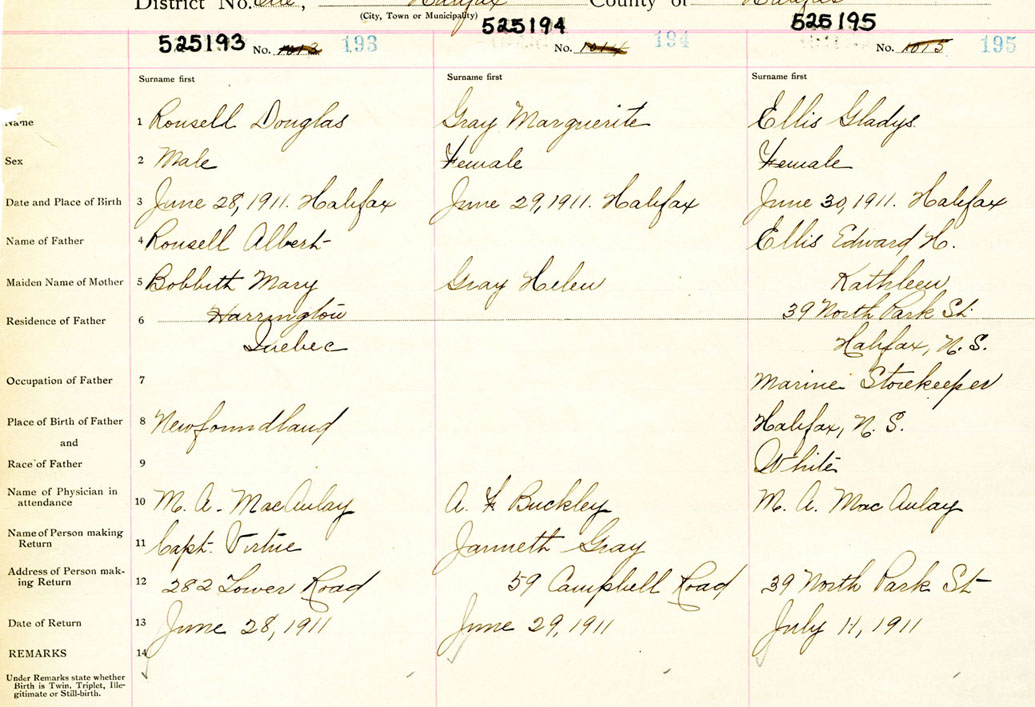 District No. One, Halifax County of Halifax
(City, Town or Municipality)
525193 No. 1013 193 525194 No. 1014 194 525195 No. 1015 195
Surname first Surname first Surname first
Name 1 Rousell Douglas Gray Marguerite Ellis Gladys
Sex 2 Male Female Female
Date and Place of Birth 3 June 28, 1911. Halifax June 29, 1911. Halifax June 30, 1911. Halifax
Name of Father 4 Rousell Albert Ellis Edward H.
Maiden Name of Mother 5 Bobbett Mary Gray Helen Kathleen
Residence of Father 6 Harrington 39 North Park St.
Quebec Halifax, N. S.
Occupation of Father 7 Marine Storekeeper
Place of Birth of Father 8 Newfoundland Halifax, N. S.
and
Race of Father 9 White
Name of Physician in
attendance 10 M. A. MacAulay A. F. Buckley M. A. MacAulay
Name of Person making
Return 11 Capt. Virtue Janneth Gray
Address of Person mak-
ing Return 12 282 Lower Road 59 Campbell Road 39 North Park St
Date of Return 13 June 28, 1911 June 29, 1911 July 11, 1911
REMARKS 14
Under Remarks state whether
Birth is Twin, Triplet, Ille-
gitimate or Still-birth.